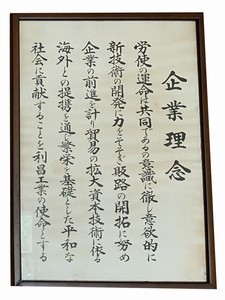 企業理念
労使の運命は共同であるの意識に徹し意欲的に
新技術の開発に力をそそぎ販路の開拓に努め
企業の前進を計り貿易の拡大資本技術に依る
海外との提携を通し繁栄を基礎とした平和な
社会に貢献することを利昌工業の使命とする